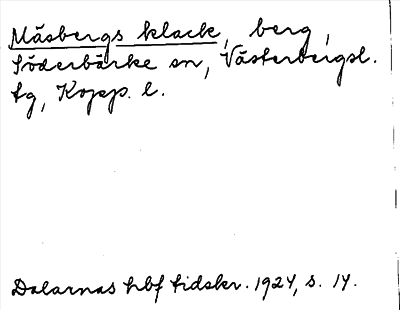 Måsbergs klack, berg,
Söderbärke sn, Västerbergsl.
tg, Kopp. l.
Dalarnas hbf tidskr. 1924, s. 14.